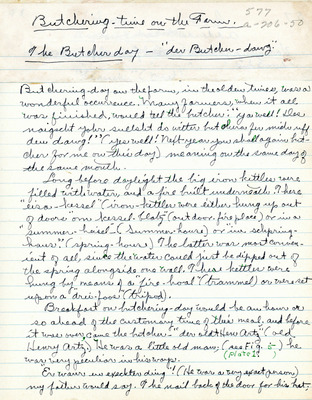 577
a-206-50
Butchering-time on the Farm.
The Butcher day – "der Butcher-dawg"
Butchering-day on the farm, in the olden times, was a
wonderful occurrence. Many farmers, when it all
was finished, would tell the butcher: "ya well! Des
naigscht yohr sullscht du witter butchera fer mich uff
dem dawg!" (yes well! Next year you shall again but-
cher for me on this day) meaning on the same day of
the same month.
Long before daylight the big iron kettles were
filled with water, and a fire built underneath. These
"eisa-kessel" (iron-kettles were either hung up out
of doors on "kessel-blatz" (out door fireplace) or in a
"summer-haisel" (summer house) or "im schpring-
haus." (spring-house) The latter was most conven-
ient of all, since the water could just be dipped out of
the spring alongside one wall. These kettles were
hung by means of a fire-hoal (trammel) or were set
upon a drei-foos (tripod).
Breakfast on butchering-day would be an hour or
so ahead of the customary time of this meal, and before
it was over, came the butcher: "der old Hen Artz" (old
Henry Artz). He was a little old man, (see Fig. 5) he
(plate 1)
was very peculiar in his ways.
"Er waur en exackter ding"! (He was a very exact person)
my father would say. The nail back of the door for his hat,